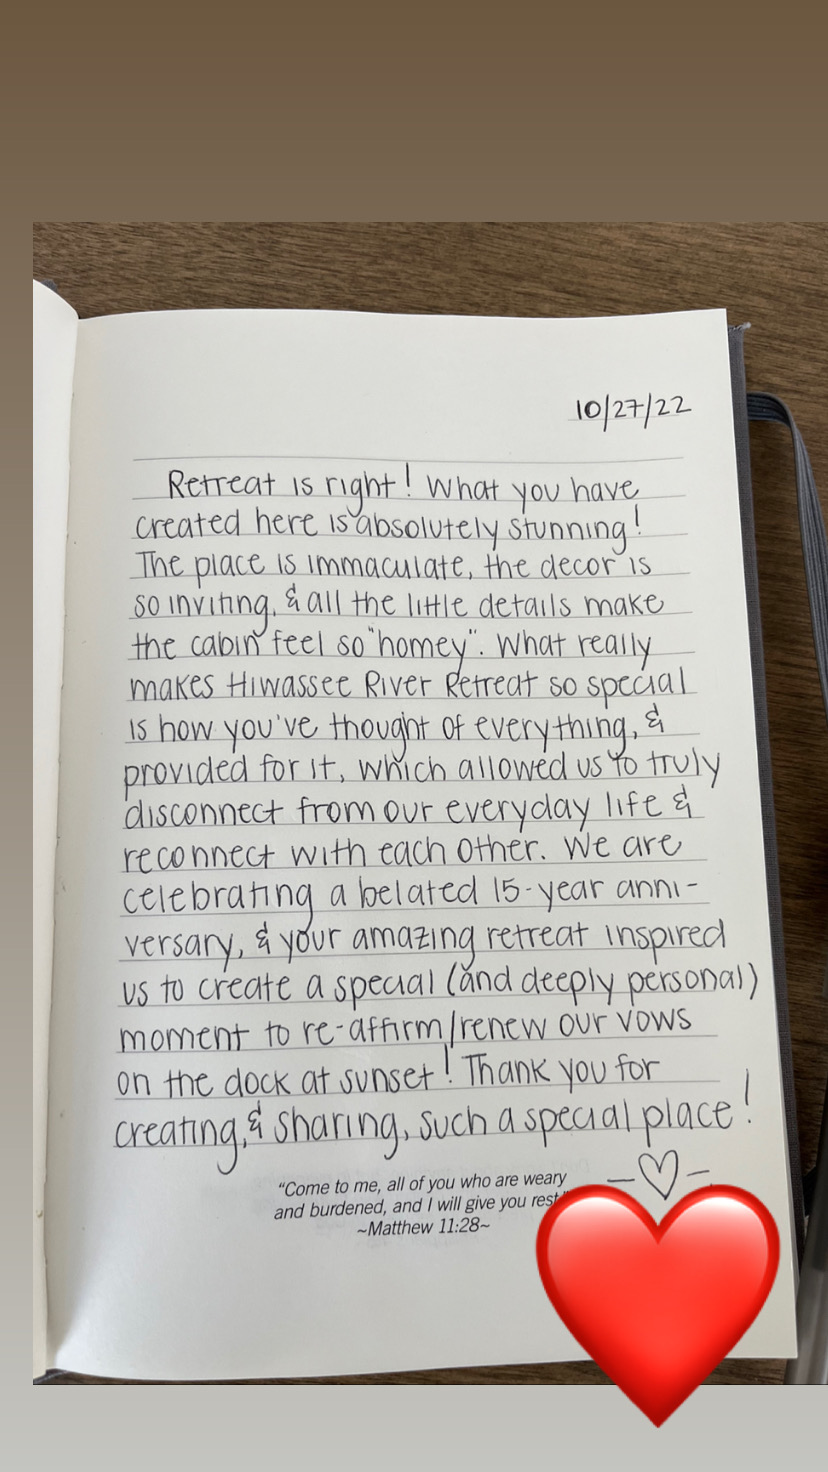 10/27/22
Retreat is right! What you have
created here is absolutely stunning!
The place is immaculate, the decor is
so inviting, & all the little details make
the cabin feel so "homey". What really
makes Hiwassee River Retreat so special
is how you've thought of everything, &
provided for it, which allowed us to truly
disconnect from our everyday life &
reconnect with each other. We are
celebrating a belated 15-year anni-
versary, & your amazing retreat inspired
us to create a special (and deeply personal)
moment to re-affirm/renew our vows
on the dock at sunset! Thank you for
creating, & sharing, such a special place!
"Come to me, all of you who are weary
and burdened, and I will give you rest."
~Matthew 11:28~